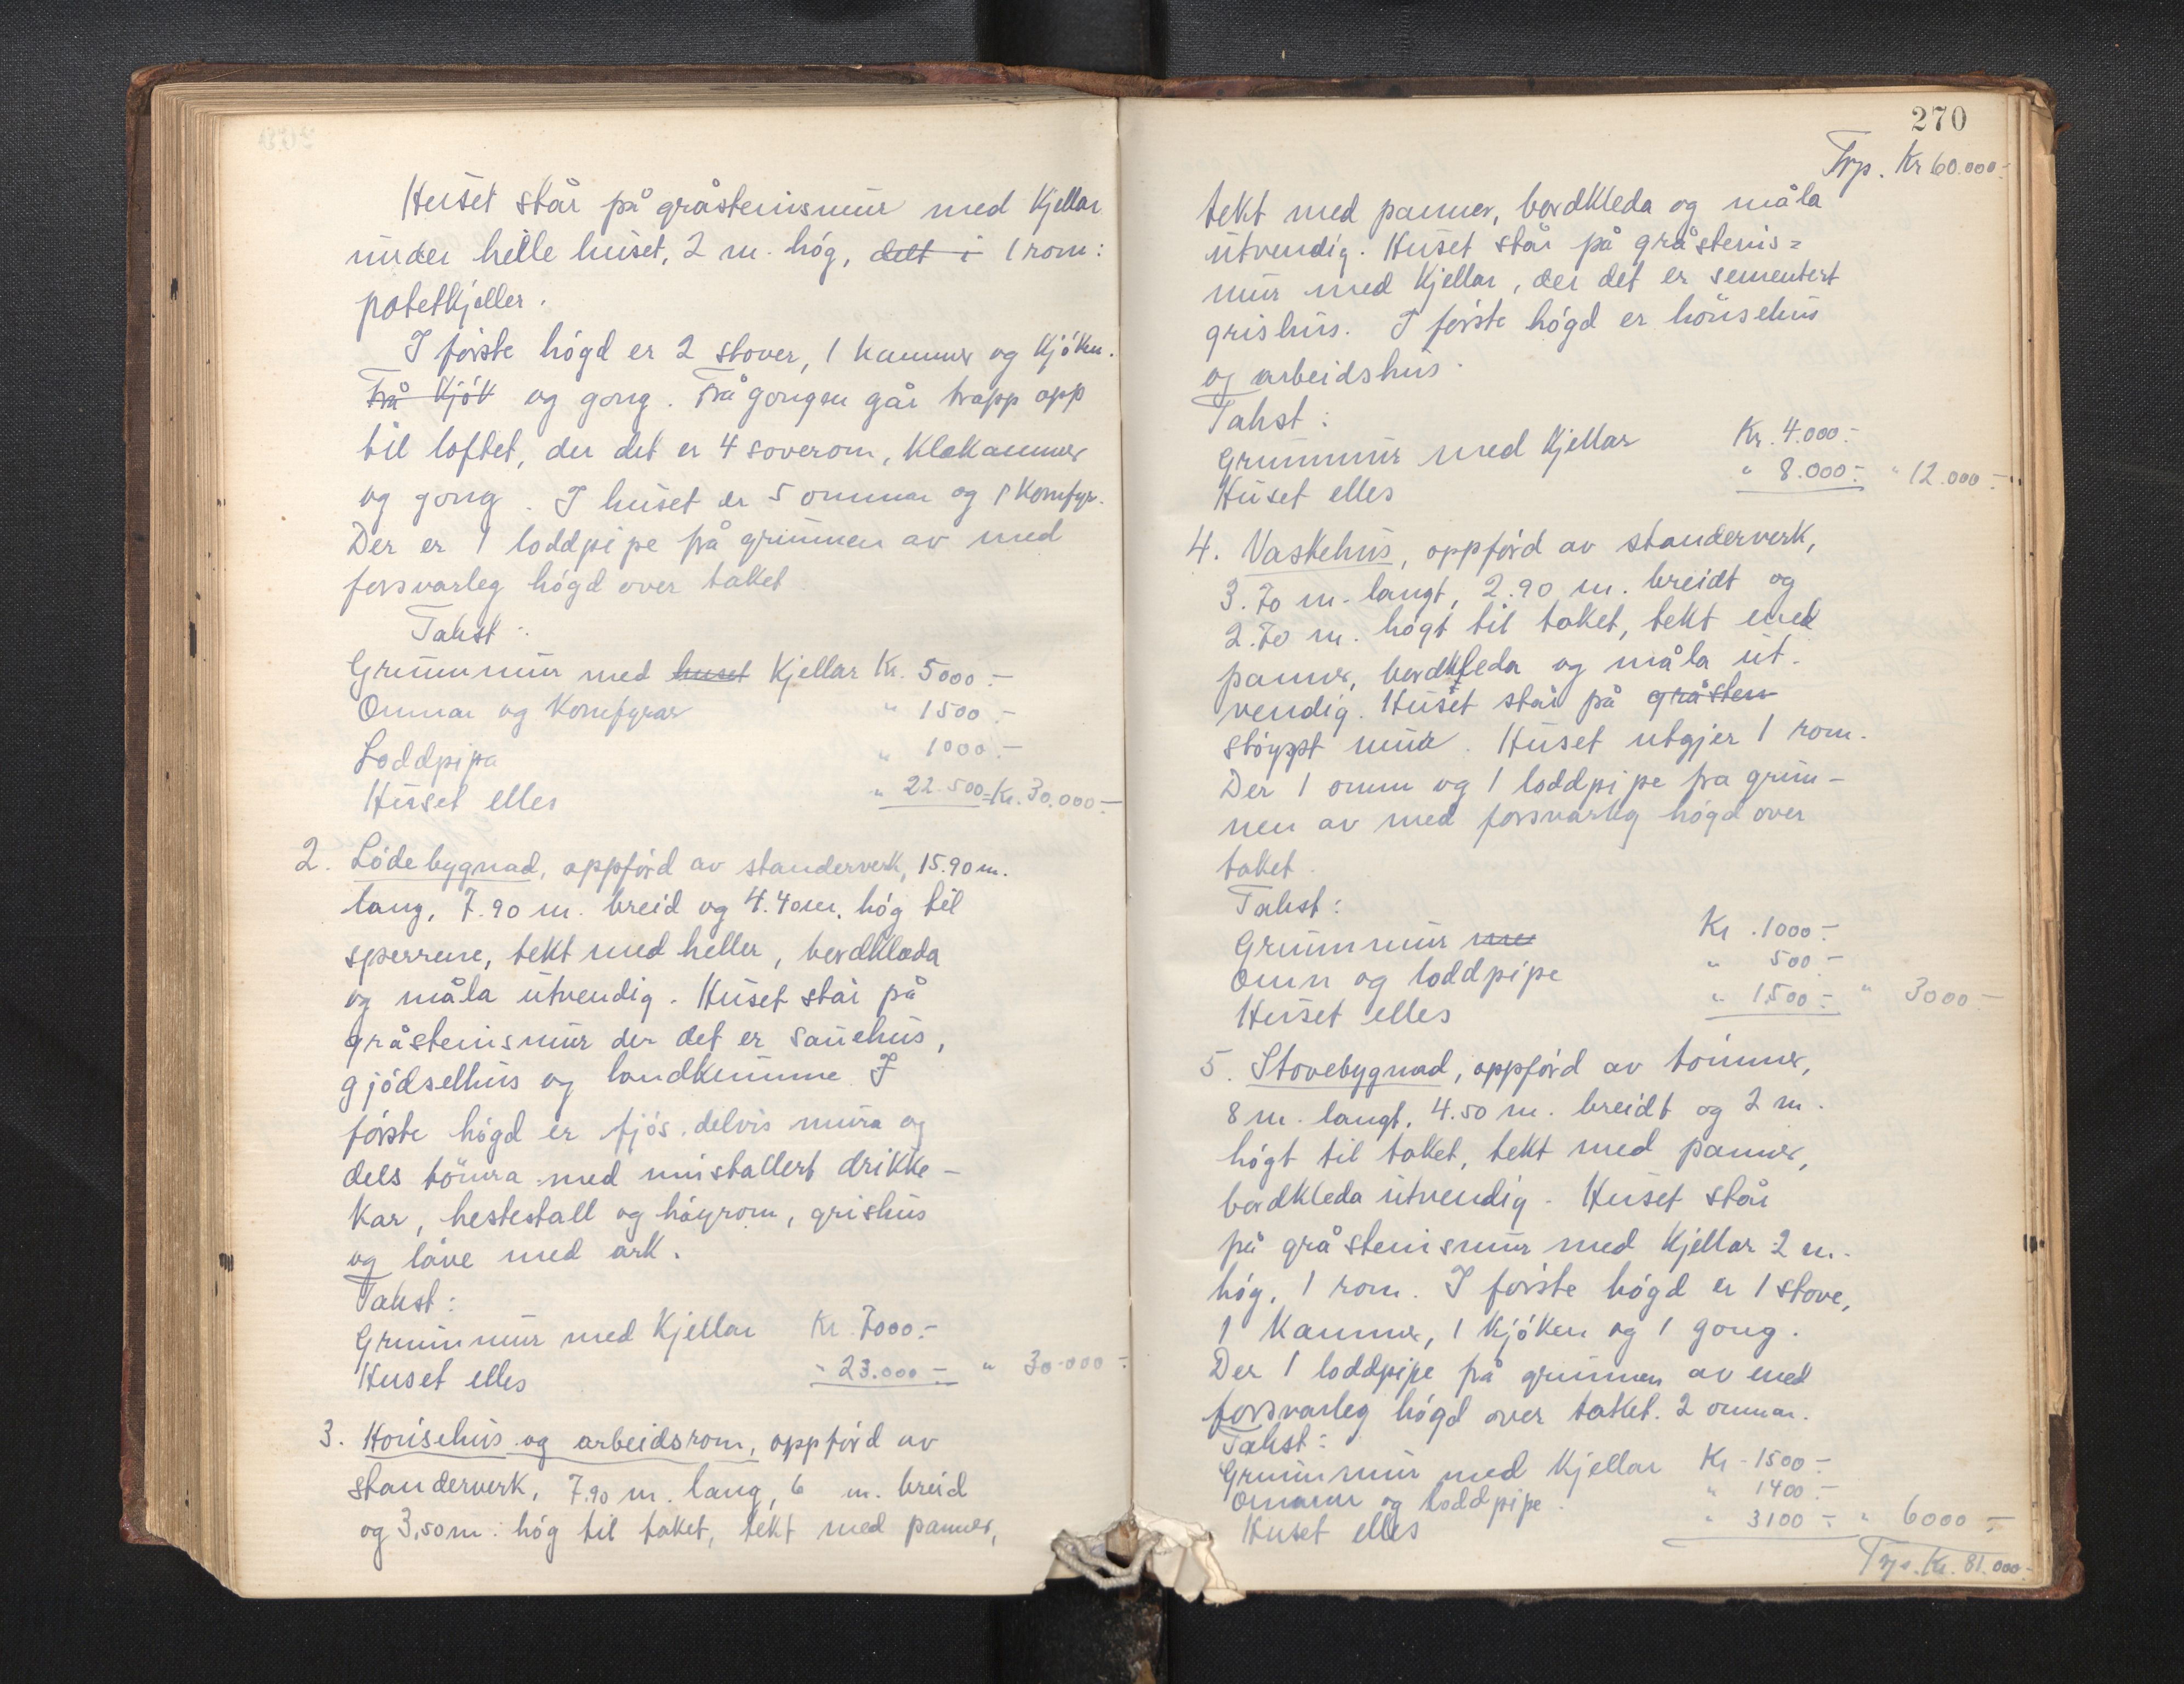 Huset står på gråsteinsmur med kjellar
under heile huset, 2 m. høg, delt i 1 rom:
potetkjeller.
I første høgd er 2 stover, 1 kammer og kjøken.
Frå kjøk og gong. Frå gongen går trapp opp
til loftet, der det er 4 soverom, klekammer
og gong. I huset er 5 omnar og 1 komfyr.
Der er 1 loddpipe frå grunnen av med
forsvarleg høgd over taket.
Takst:
Grunnmur med huset kjellar Kr. 5000.-
Omnar og komfyrar " 1500.-
Loddpipa " 1000.-
Huset elles " 22.500=Kr. 30.000.-
2. Lødebygnad, oppførd av standerverk, 15.90 m.
lang, 7.90 m. breid og 4.40 m. høg til
sperrene, tekt med heller, bordklæda
og måla utvendig. Huset står på
gråsteinsmur der det er sauehus,
gjødselhus og landkumme. I
første høgd er fjøs, delvis mura og
dels tømra med innstallert drikke-
kar, hestestall og høyrom, grishus
og låve med ark.
Takst:
Grunnmur med kjellar Kr. 7000.-
Huset elles " 23.000.- " 30.000.-
3. Hønsehus og arbeidsrom, oppførd av
standerverk, 7.90 m. lang, 6 m. breid
og 3,50 m. høg til taket, tekt med panner,
270
Trp. Kr 60.000.-
tekt med panner, bordkleda og måla
utvendig. Huset står på gråsteins=
mur med kjellar, der det er sementert
grishus. I første høgd er hønsehus
og arbeidshus.
Takst:
Grunnmur med kjellar Kr. 4.000.-
Huset elles " 8.000.- " 12.000.-
4. Vaskehus, oppførd av standerverk,
3.70 m. langt, 2.90 m. breidt og
2.70 m. høgt til taket, tekt med
panner, bordkleda og måla ut-
vendig. Huset står på gråsten
støypt mur. Huset utgjer 1 rom.
Der 1 omn og 1 loddpipe fra grun-
nen av med forsvarleg høgd over
taket.
Takst:
Grunnmur me Kr. 1000.-
Omn og loddpipe " 500.-
Huset elles " 1.500.- " 3000.-
5. Stovebygnad, oppførd av tømmer,
8 m. langt, 4.50 m. breidt og 2 m.
høgt til taket, tekt med panner,
bordkleda utvendig. Huset står
på gråsteinsmur med kjellar 2 m.
høg, 1 rom. I første høgd er 1 stove,
1 kammer, 1 kjøken og 1 gong.
Der 1 loddpipe frå grunnen av med
forsvarleg høgd over taket. 2 omnar.
Takst:
Grunnmur med kjellar Kr. 1500.-
Omnar og loddpipe. " 1400.-
Huset elles " 3100.- " 6000.-
Trp. Kr. 81.000.-